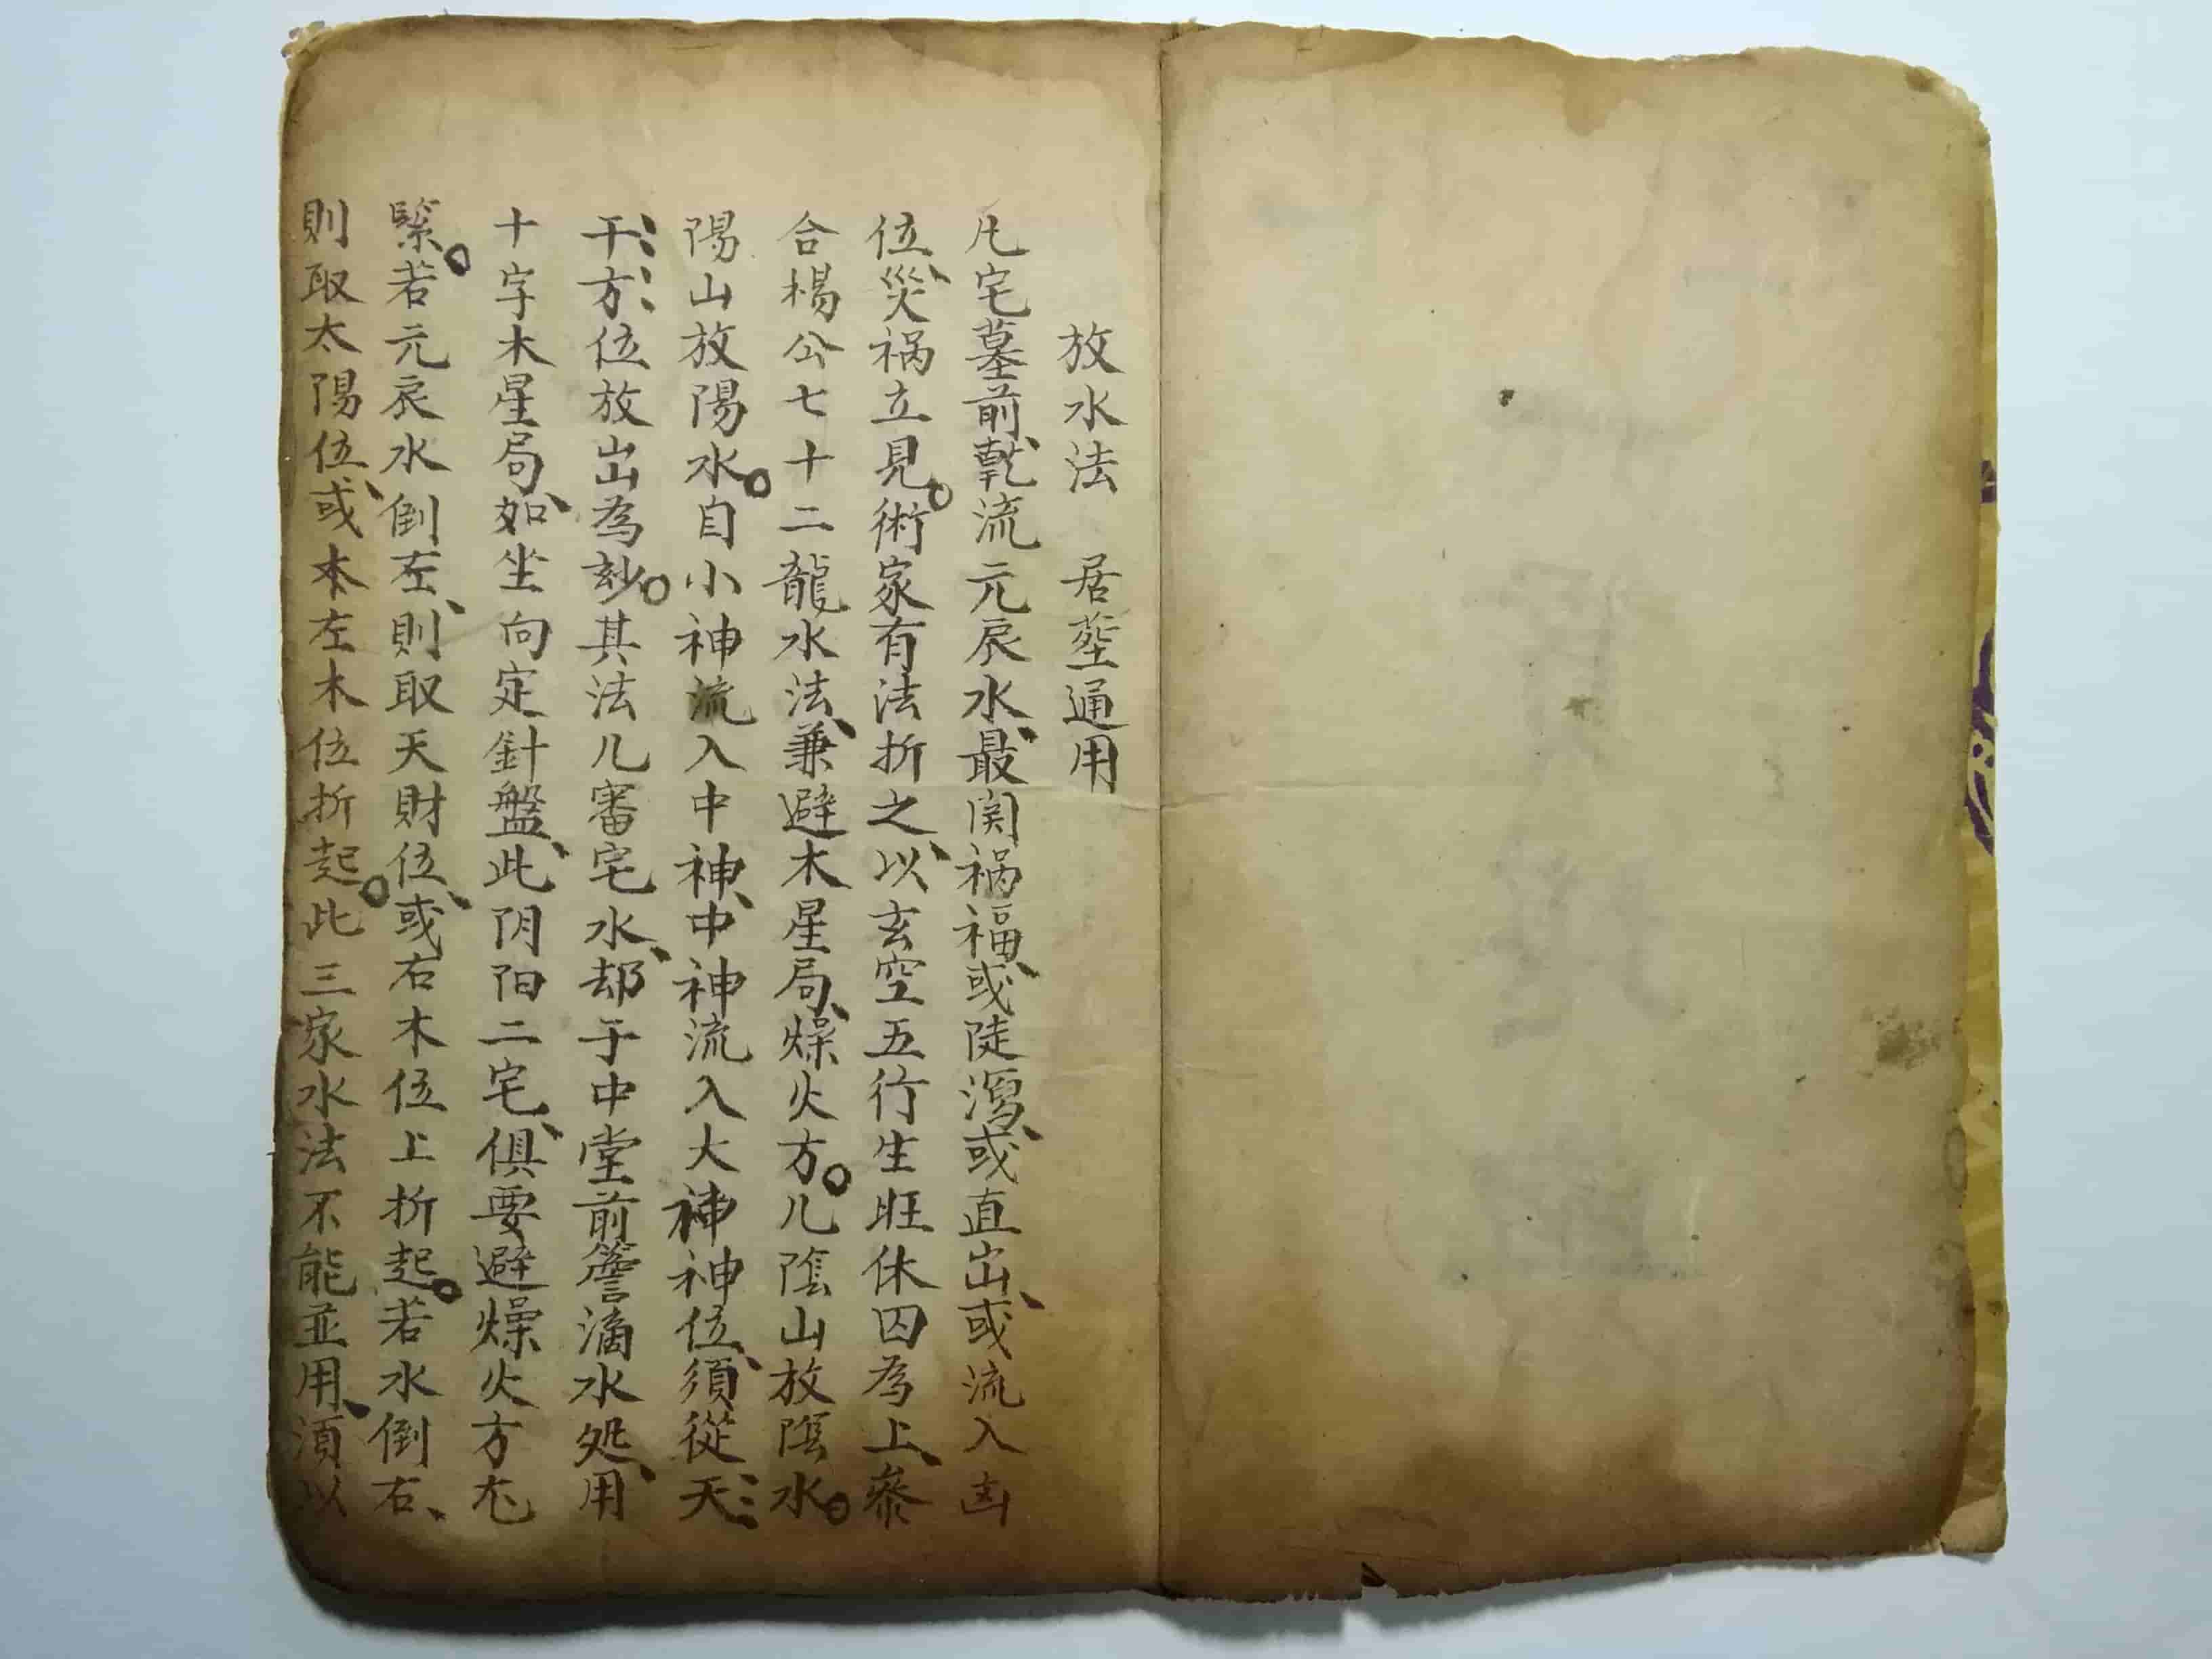 放水法 居塋通用
凡宅墓前乾流元辰水、最関祸福、或陡瀉、或直出、或流入凶
位、災祸立見。術家有法折之、以玄空五行生旺休囚為上、叅
合楊公七十二龍水法、兼避木星局、燥火方。凡隂山放隂水。
陽山放陽水。自小神流入中神、中神流入大神神位、須從天
干方位放出為玅。其法凡審宅水、却于中堂前簷滴水処、用
十字木星局、如坐向定針盤、此阴阳二宅、俱要避燥火方尤
緊。若元辰水倒左、則取天財位、或右木位上折起。若水倒右、
則取太陽位、或本左木位折起。此三家水法不能並用、須以